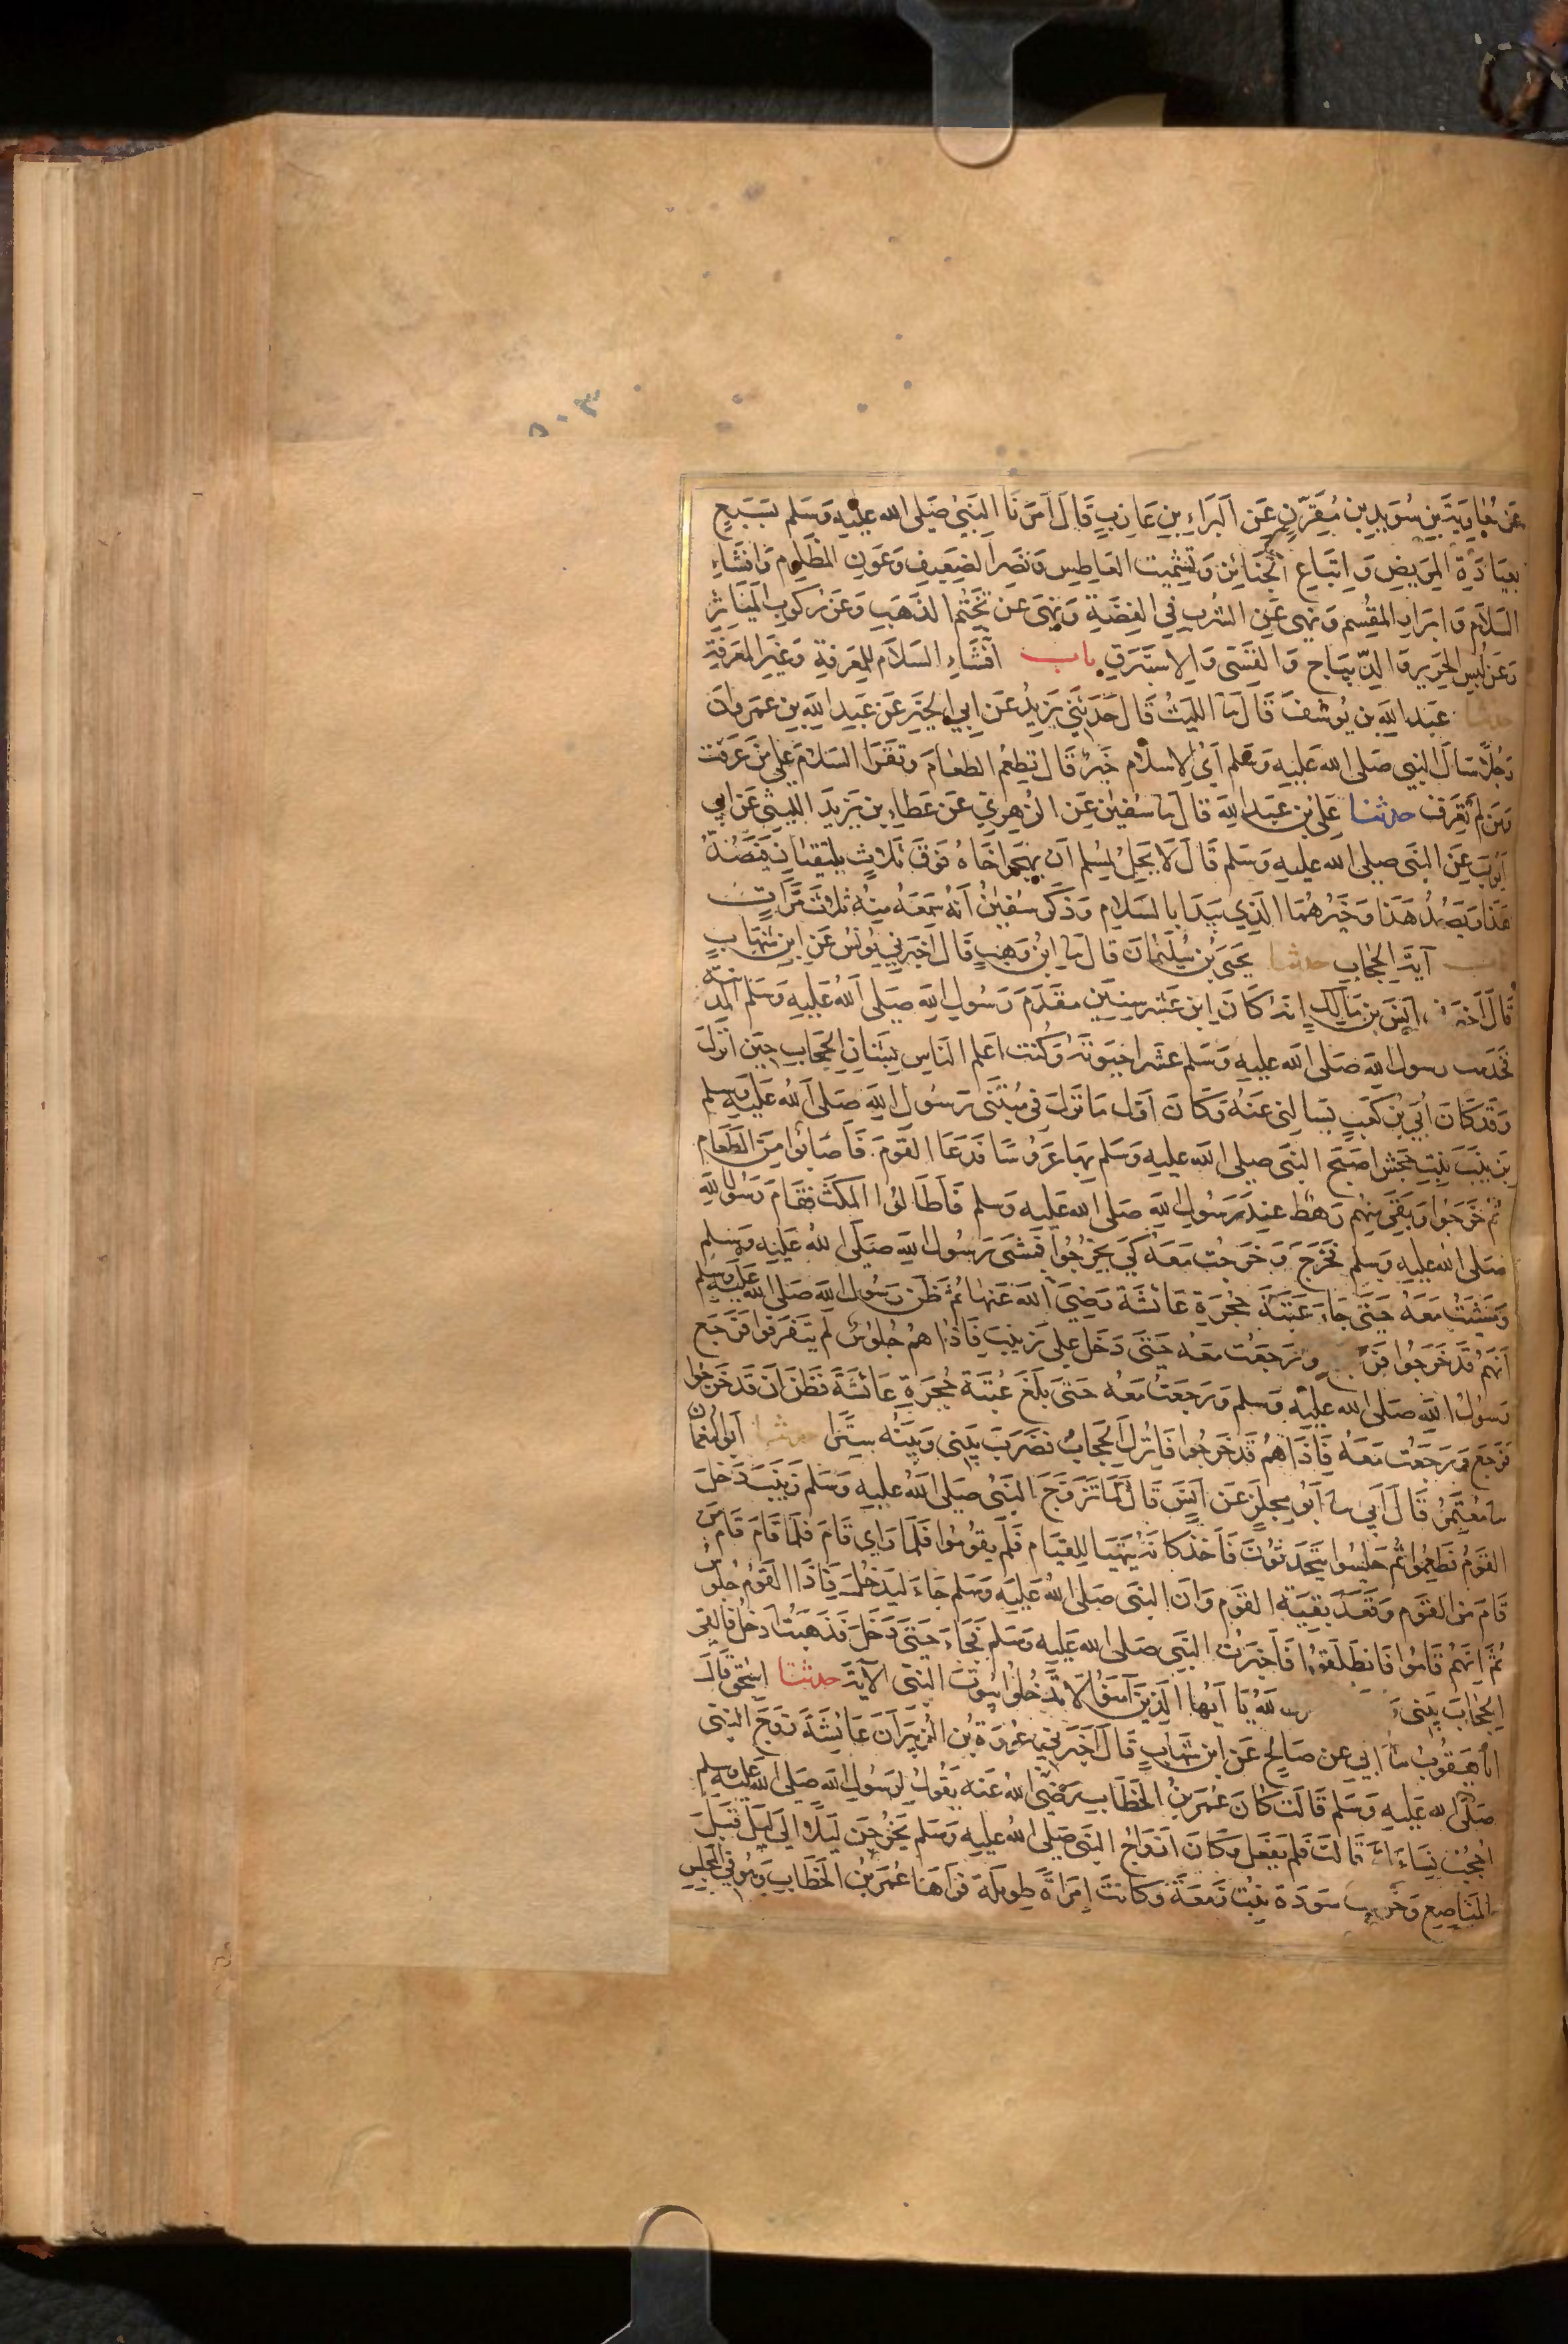 ٥٠٣
عن معاوية بن سويد بن مقرن عن البراء بن عازب قال امرنا النبي صلى الله عليه وسلم بسبع
بعيادة المريض واتباع الجنائز وتشميت العاطس ونصر الضعيف وعون المظلوم وافشاء
السلام وابرار المقسم ونهى عن الشرب في الفضة ونهى عن تختم الذهب وعن ركوب المياثر
وعن لبس الحرير والديباج والقسي والاستبرق باب افشاء السلام للمعرفة وغير المعرفة
حدثنا عبد الله بن يوسف قال نا الليث قال حدثني يزيد عن ابي الخير عن عبد الله بن عمر وان
رجلا سال النبي صلى الله عليه وسلم اي الاسلام خير قال تطعم الطعام وتقرا السلام على من عرفت
ومن لم تعرف حدثنا علي بن عبد الله قال نا سفين عن الزهري عن عطاء بن يزيد الليثي عن ابي
ايوب عن النبي صلى الله عليه وسلم قال لا يحل لمسلم ان يهجر اخاه فوق ثلاث يلتقيان فيصد
هذا ويصد هذا وخيرهما الذي يبدا بالسلام وذكر سفين انه سمعه منه ثلاث مرات
باب آية الحجاب حدثنا يحيى بن سليمان قال نا ابن وهب قال اخبرني يونس عن ابن شهاب
قال انس بن مالك انه كان ابن عشر سنين مقدم رسول الله صلى الله عليه وسلم المدينة
فخدمت رسول الله صلى الله عليه وسلم عشرا حيوته وكنت اعلم الناس بشان الحجاب حين انزل
وقد كان ابي بن كعب يسالني عنه وكان اول ما نزل في مبتنى رسول الله صلى الله عليه وسلم
بزينب بنت جحش اصبح النبي صلى الله عليه وسلم بها عروسا فدعا القوم فاصابوا من الطعام
ثم خرجوا وبقي منهم رهط عند رسول الله صلى الله عليه وسلم فاطالوا المكث فقام رسول الله
صلى الله عليه وسلم فخرج وخرجت معه كي يخرجوا فمشى رسول الله صلى الله عليه وسلم
ومشيت معه حتى جاء عتبة حجرة عائشة رضي الله عنها ثم ظن رسول الله صلى الله عليه وسلم
انهم قد خرجوا ورجعت معه حتى دخل على زينب فاذا هم جلوس لم يتفرقوا فرجع
رسول الله صلى الله عليه وسلم ورجعت معه حتى بلغ عتبة حجرة عائشة فظن ان قد خرجوا
فرجع ورجعت معه فاذا هم قد خرجوا فانزل الحجاب فضرب بيني وبينه سترا حدثنا ابو النعمان
نا معتمر قال ابي نا ابو مجلز عن انس قال لما تزوج النبي صلى الله عليه وسلم زينب دخل
القوم فطعموا ثم جلسوا يتحدثون فاخذ كانه يتهيا للقيام فلم يقوموا فلما راى قام فلما قام قام من
قام من القوم وقعد بقية القوم وان النبي صلى الله عليه وسلم جاء ليدخل فاذا القوم جلوس
ثم انهم قاموا فانطلقوا فاخبرت النبي صلى الله عليه وسلم فجاء حتى دخل فذهبت ادخل فالقى
الحجاب بيني الله يا ايها الذين آمنوا لا تدخلوا بيوت النبي الآية حدثنا اسحق قال
انا يعقوب نا ابي عن صالح عن ابن شهاب قال اخبرني عروة بن الزبير ان عائشة زوج النبي
صلى الله عليه وسلم قالت كان عمر بن الخطاب رضي الله عنه يقول لرسول الله صلى الله عليه وسلم
احجب نساءك قالت فلم يفعل وكان ازواج النبي صلى الله عليه وسلم يخرجن ليلا الى ليل قبل
المناصع وخرجت سودة بنت زمعة وكانت امراة طويلة فراها عمر بن الخطاب وهو في المجلس